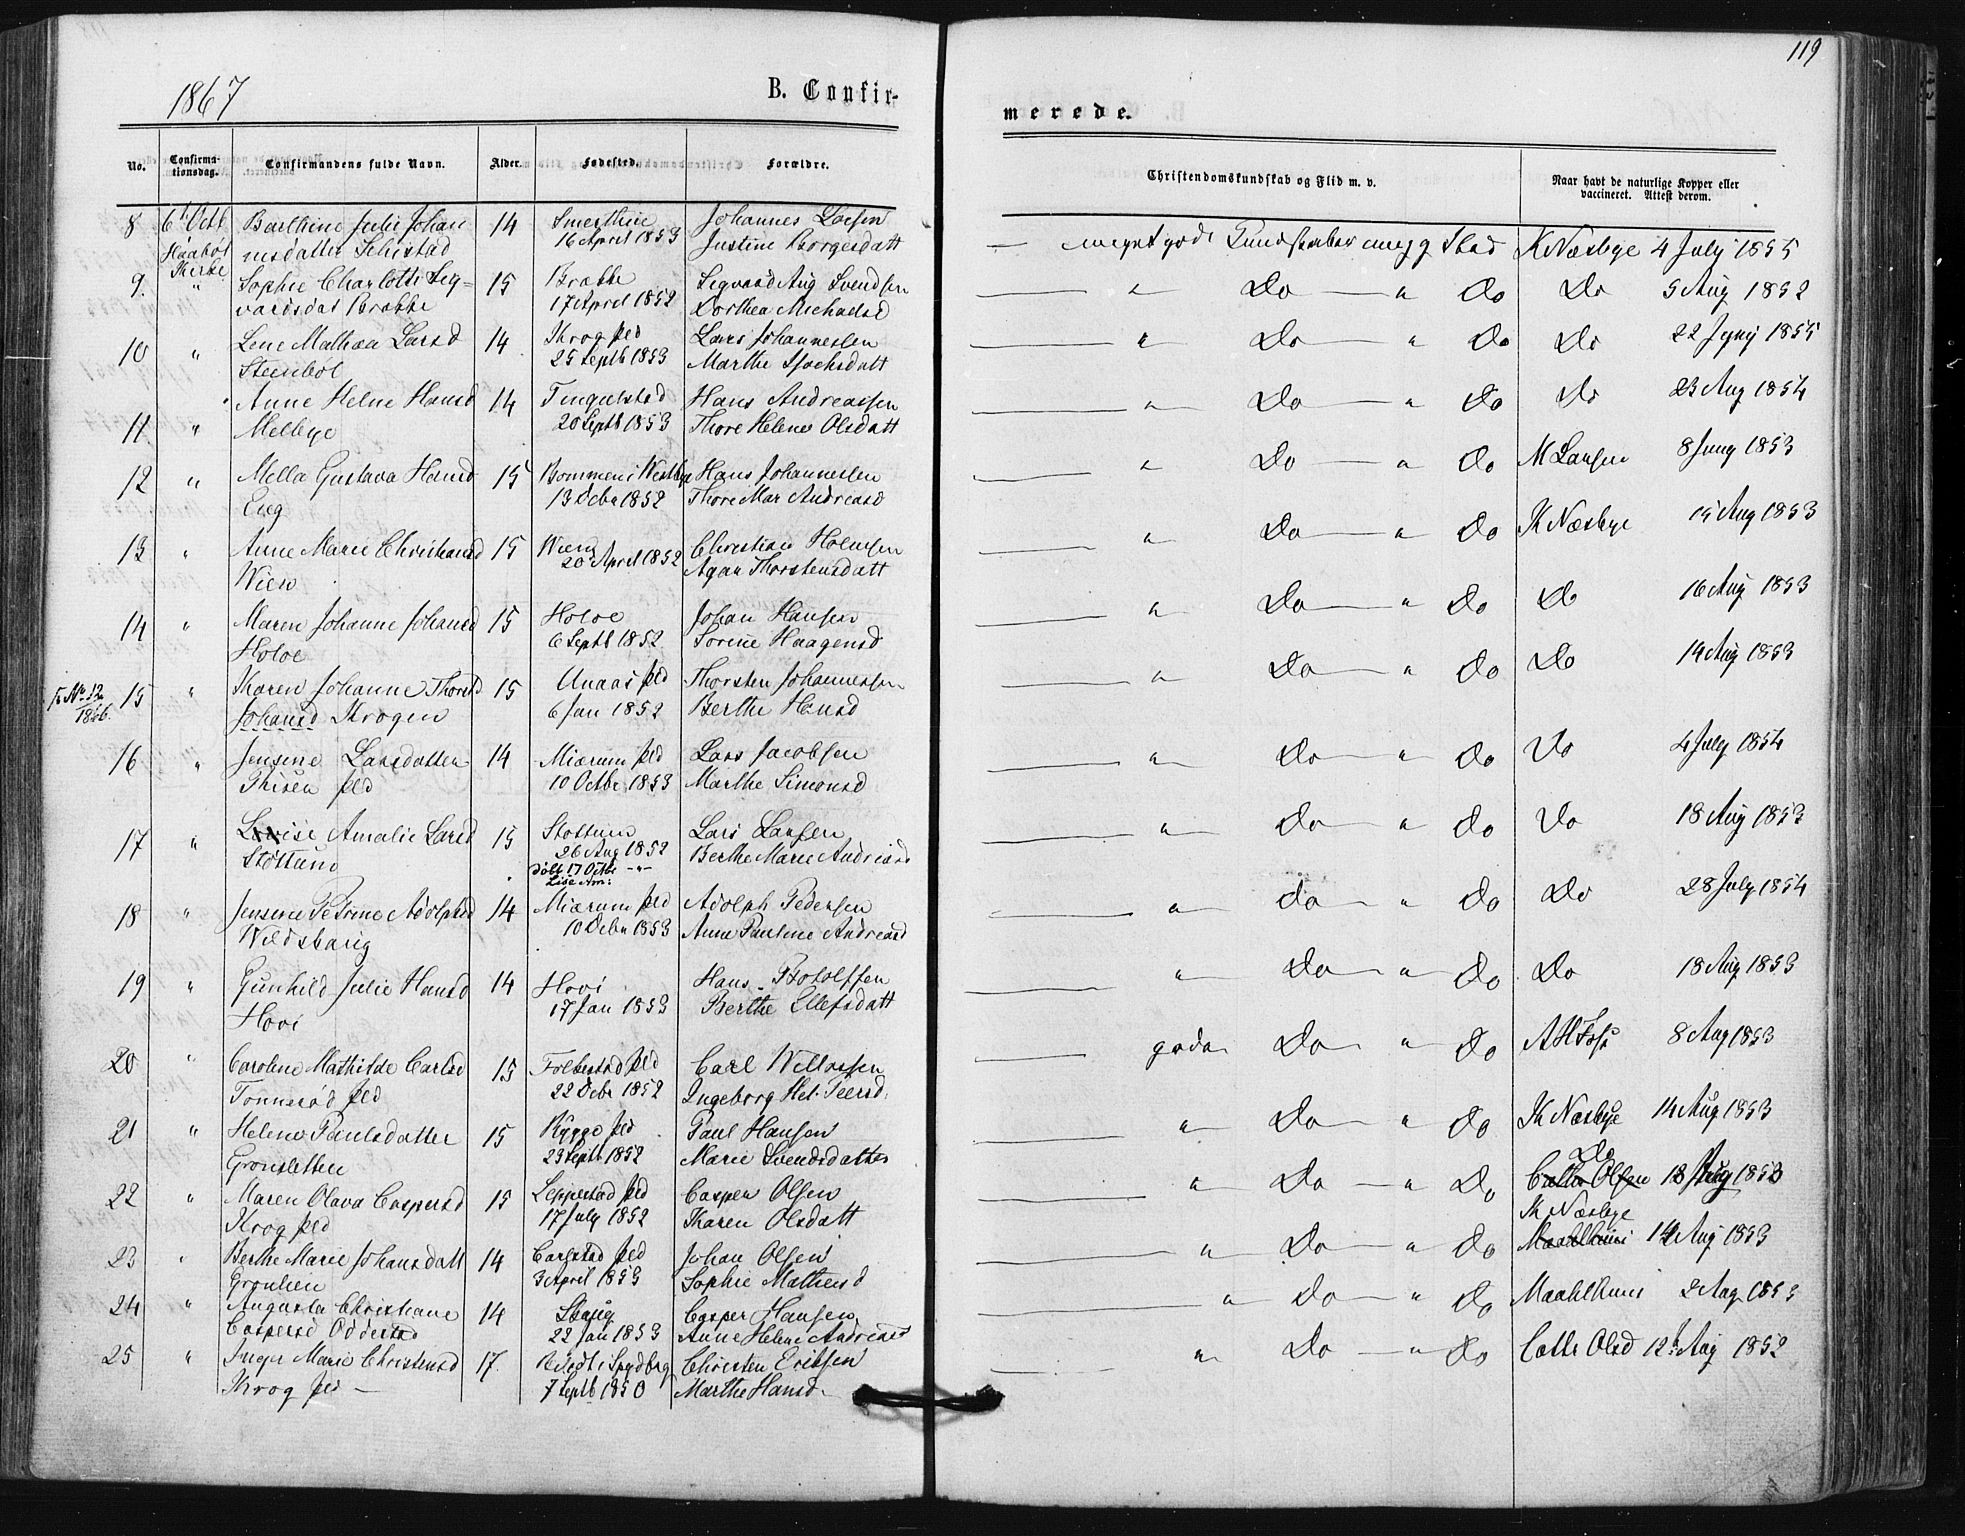 119
1867
B. Confir-
merede.
No. Confirma-tionsdag. Confirmandens fulde Navn. Alder. Fødested. Forældre. Christendomskundskab og Flid m. v. Naar havt de naturlige Kopper eller vaccineret. Attest derom.
8 6 Octb Julie Johan 14 Smerthue Johannes meget gode Kundskaber meg g K Næsbye 4 July 1855
Haabøl nisdatter 16 April 1853 Justine Borgersdatt
Kirke
9 " Sophie Charlotte Seg= 15 Brække Segvard Aug Svendsen " Do " Do Do 5 Aug 1852
vardsdat Brække 17 April 1852 Dorthea Michaelsd
10 " Lene Mathea Larsd 14 Krog pld Lars Johannessen " Do " Do Do 22 Juny 1855
Steenbøl 25 Septb 1853 Marthe
11 " Anne Helne Hansd 14 Tingulstad Hans Andreassen " Do " Do Do 23 Aug 1854
Melbye 20 Septb 1853 Thore Helene Olsdatt
12 " Mella Gustava Hansd 15 Bommen i Westbye Hans Johannessen " Do " Do M Larsen 8 Juny 1853
Eng 13 Debr 1852 Thore Mar Andreasd
13 " Anne Marie Christiansd 15 Wien Christian Holmsen " Do " Do K Næsbye 15 Aug 1853
Wien 20 April 1852 Agan Thorstensdatt
14 " Maren Johanne Johansd 15 Holoe Johan Hansen " Do " Do Do 16 Aug 1853
Holoe 6 Septb 1852 Sorine Haagensd
No 12 1866. 15 " Karen Johanne Thorstd 15 Unaas pld Thorsten Johannessen " Do " Do Do 14 Aug 1853
Johansd Krogen 6 Jan 1852 Berthe Hansd
16 " Jensene Larsdatter 14 Miærum pld Lars Jacobsen " Do " Do Do 4 July 1854
Thisen pld 10 Octbr 1853 Marthe Simonsd
17 " Amalie Larsd 15 Stottum Lars Larsen " Do " Do Do 18 Aug 1853
Støttum 26 Aug 1852 Berthe Marie Andreasd
døbt 17 Octbr - " -
Lise Am:
18 " Jensine Petrine Adolphsd 14 Miærum pld Adolph Pedersen " Do " Do Do 28 July 1854
Wildsberg 10 Debr 1853 Anne Pauline Andreasd
19 " Gunhild Julie Hansd 14 Hovi Hans " Do " Do Do 18 Aug 1853
Hovi 17 Jan 1853 Berthe Ellefsdatt
20 " Caroline Mathilde Carlsd 15 Folkestad pld Carl gode Do " Do A H Foss 8 Aug 1853
Tonnerød pld 22 Debr 1852 Ingeborg Hel. Peersd.
21 " Helene Paulsdatter 15 Rygge pld Paul Hansen " Do " Do K Næsbye 14 Aug 1853
Gronsletten 23 Septb 1852 Marie Svendsdatter
22 " Maren Olava Caspersd 15 Leppestad pld Casper Olsen " Do " Do Do
Krog pld 17 July 1852 Karen Olsdatt Olsen 18 Aug 1853
23 " Berthe Marie Johansdatt 14 Carlstad pld Johan Olsen " Do " Do K Næsbye 14 Aug 1853
Gronlien 3 April 1853 Sophie Mathiesd
24 " Augusta Christiane 14 Skaug Casper Hansen " Do " Do 2 Aug 1853
Caspersd Oddestad 22 Jan 1853 Anne Helene Andreasd
25 " Inger Marie Christensd 17 i Spydberg Christen Eriksen " Do " Do Olsd 12 Aug 1852
Krog pld 7 Septb 1850 Marthe Hansd